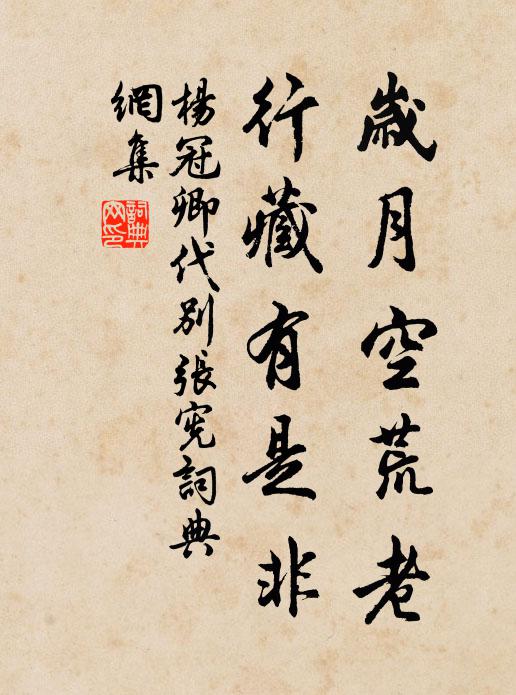 歲月空荒老
行藏有是非
楊冠卿代別張宪詞典
網集
詞典
网印